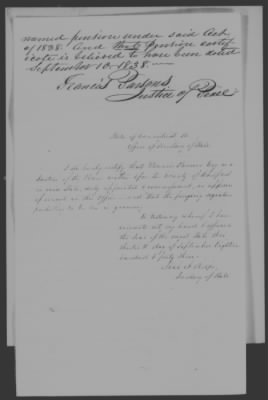 named pension under said Act
of 1838. And that Pension certif
icate is believed to have been dated
September 10. 1838.—
Francis Parsons,
Justice of Peace
State of Connecticut Ss
Office of Secretary of State
I do hereby certify that Francis Parsons Esq is a
Justice of the Peace within & for the County of Hartford
in said State, duly appointed & commissioned, as appears
of record in this Office— and that the foregoing signature
purporting to be his is genuine.
In testimony whereof I have
hereunto set my hand & affixed
the Seal of the said State this
day of September Eighteen
hundred & fifty three.
Secretary of State